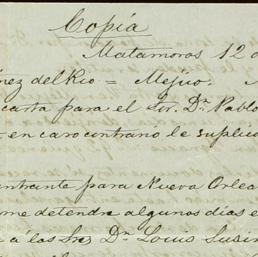 Copía
Matamoros 12 d
nez del Rio = Mejico.
carta para el Sor. Dr. Pablo
en caso contrario le suplic
ntrante para Nueva Orlea
me detendré algunos dias e
a los Sres Dr. Louis